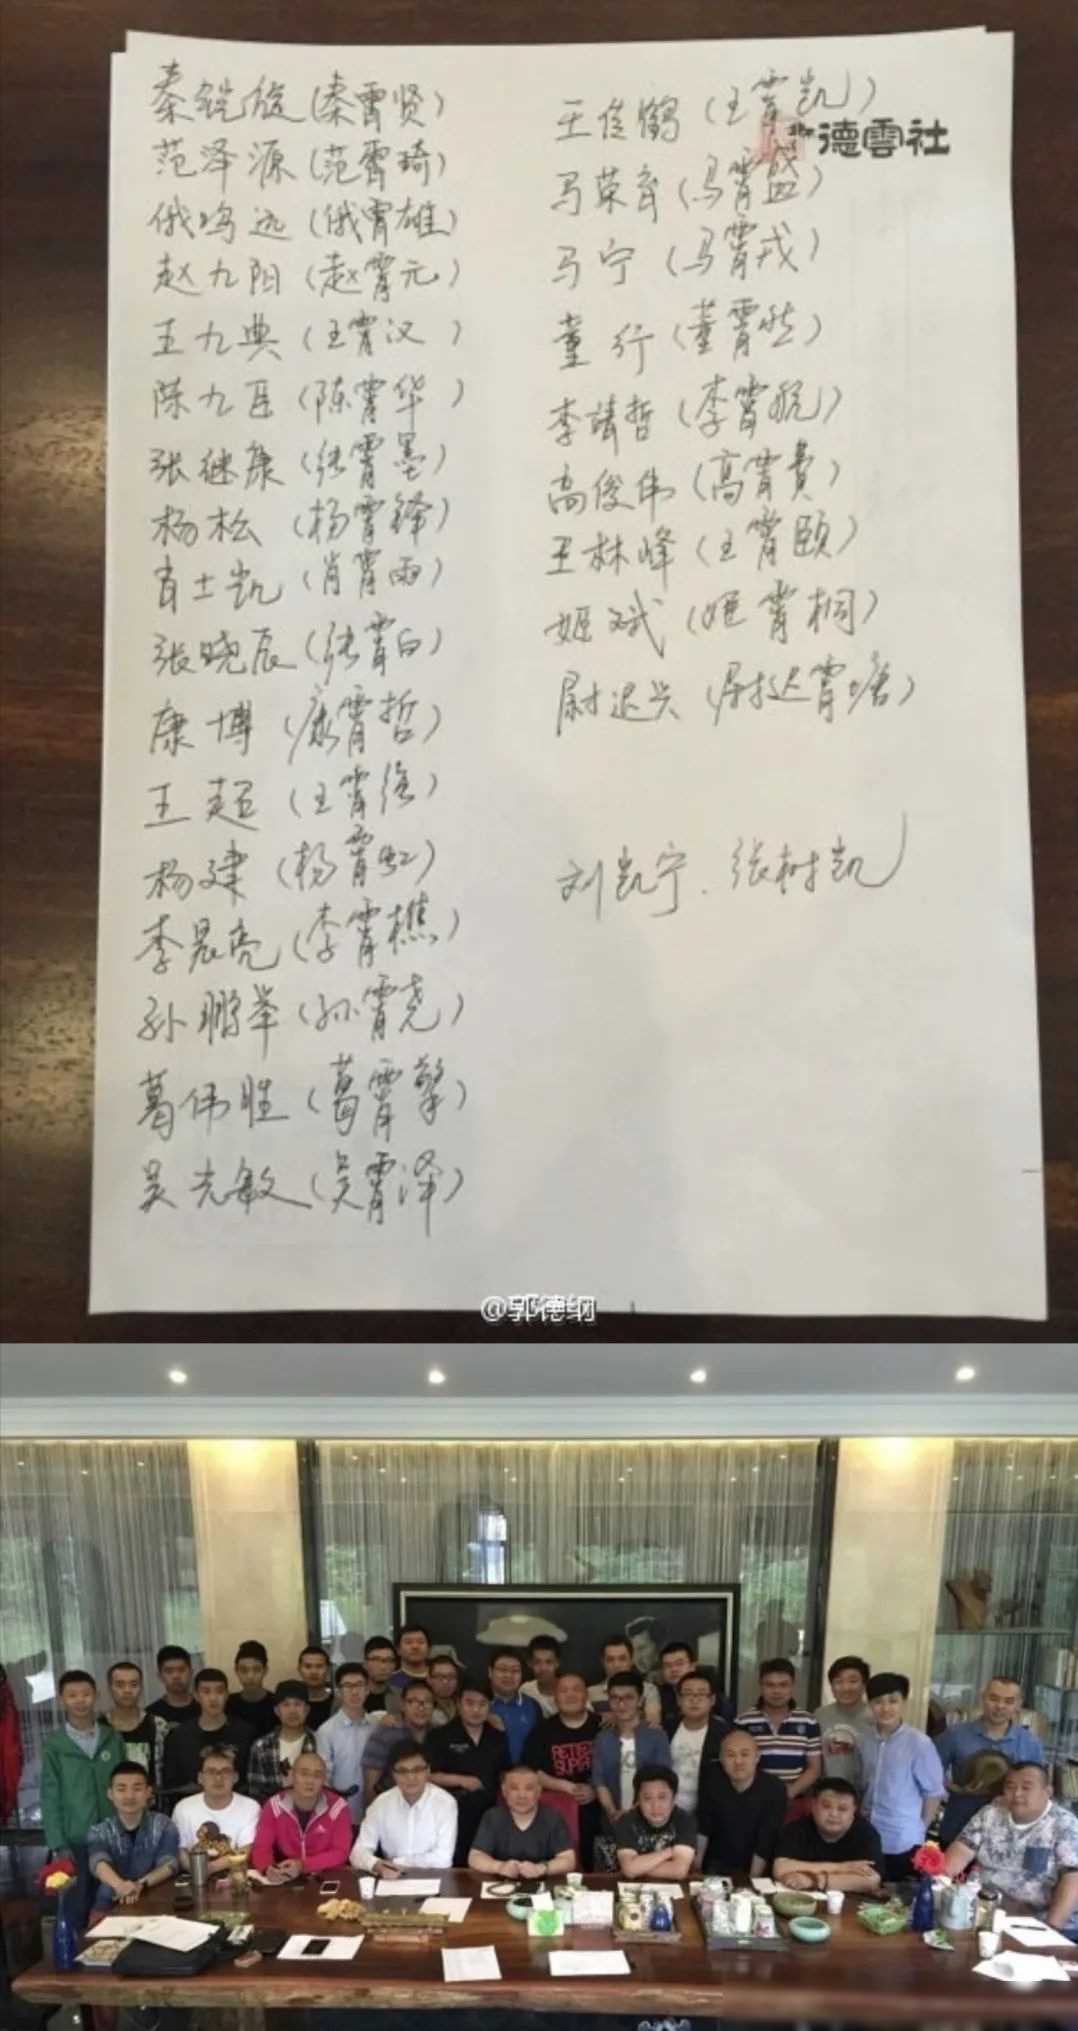 秦锐旋(秦霄贤)
范泽源(范霄琦)
俄鸣远(俄霄雄)
赵九阳(赵霄元)
王九典(王霄汉)
陈九臣(陈霄华)
张继康(张霄墨)
杨松(杨霄锋)
肖士凯(肖霄雨)
张晓辰(张霄白)
康博(康霄哲)
王超(王霄)
杨建(杨霄虹)
李晨亮(李霄樵)
孙鹏举(孙霄尧)
葛伟胜(葛霄擎)
吴光敏(吴霄泽)
德雲社
王佳鹤(王霄凯)
马荣育(马霄盛)
马宁(马霄戎)
董行(董霄然)
李靖哲(李霄航)
高俊伟(高霄贵)
王林峰(王霄颐)
姬斌(姬霄桐)
尉迟兴(尉迟霄塘)
刘凯宁、张树凯
@郭德纲
RETE
SUPR